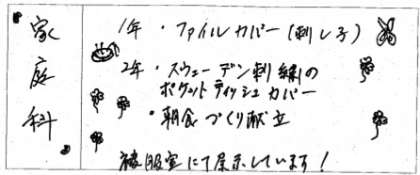 家庭科
1年・ファイルカバー(刺し子)
2年・スウェーデン刺繍の
ポケットティッシュカバー
・朝食づくり献立
被服室にて展示しています!